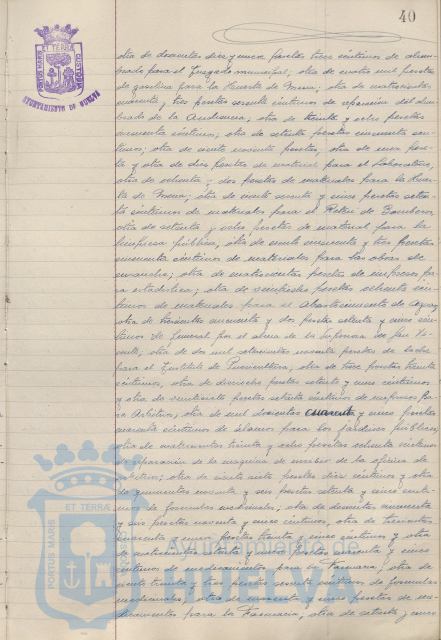 40
PORTUS MARIS ET TERRÆ CUSTODIA
AYUNTAMIENTO DE HUELVA
otra de doscientas diez y nueve pesetas trece céntimos de alum-
brado para el Juzgado municipal; otra de cuatro mil pesetas
de gasolina para la
cuarenta y tres pesetas sesenta céntimos de reparación del alum-
brado de la Audiencia, otra de treinta y ocho pesetas
cincuenta céntimos; otra de setenta pesetas cincuenta cén-
timos; otra de ciento noventa pesetas, otra de una pese-
ta y otra de diez pesetas de material para el Laboratorio,
otra de ochenta y dos pesetas de materiales para la
otra de ciento sesenta y cinco pesetas seten-
ta céntimos de materiales para el Retén de Bomberos,
otra de setenta y ocho pesetas de material para la
limpieza pública, otra de ciento cincuenta y tres pesetas
cincuenta céntimos de materiales para las obras de
ensanche; otra de cuatrocientas pesetas de impresos pa-
ra estadística; otra de veintiseis pesetas ochenta cén-
timos de materiales para el Abastecimiento de Aguas,
otra de trescientas cincuenta y dos pesetas setenta y cinco cén-
timos de funeral por el alma de la Superiora de San Vi-
cente, otra de dos mil setecientas noventa pesetas de leche
para el Instituto de Puericultura, otra de trece pesetas treinta
céntimos, otra de dieciocho pesetas setenta y cinco céntimos
y otra de veintisiete pesetas setenta céntimos de impresos pa-
ra Arbitrios, otra de mil doscientas cuarenta y cinco pesetas
cuarenta céntimos de álamos para los jardines públicos,
otra de cuatrocientas treinta y ocho pesetas ochenta céntimos
de reparación de la máquina de escribir de la oficina de
otra de ciento siete pesetas diez céntimos y otra
de quinientas noventa y seis pesetas setenta y cinco cénti-
mos de fórmulas medicinales; otra de doscientas cincuenta
y seis pesetas noventa y cinco céntimos, otra de trescientas
cincuenta y cinco pesetas treinta y cinco céntimos y otra
de cuatrocientas treinta y cinco pesetas sesenta y cinco
céntimos de medicamentos para la Farmacia, otra de
ciento treinta y tres pesetas sesenta céntimos de fórmulas
medicinales; otra de noventa y cinco pesetas de me-
dicamentos para la Farmacia, otra de setenta y cinco
PORTUS MARIS ET TERRÆ CUSTODIA
Ayuntamiento de
HUELVA